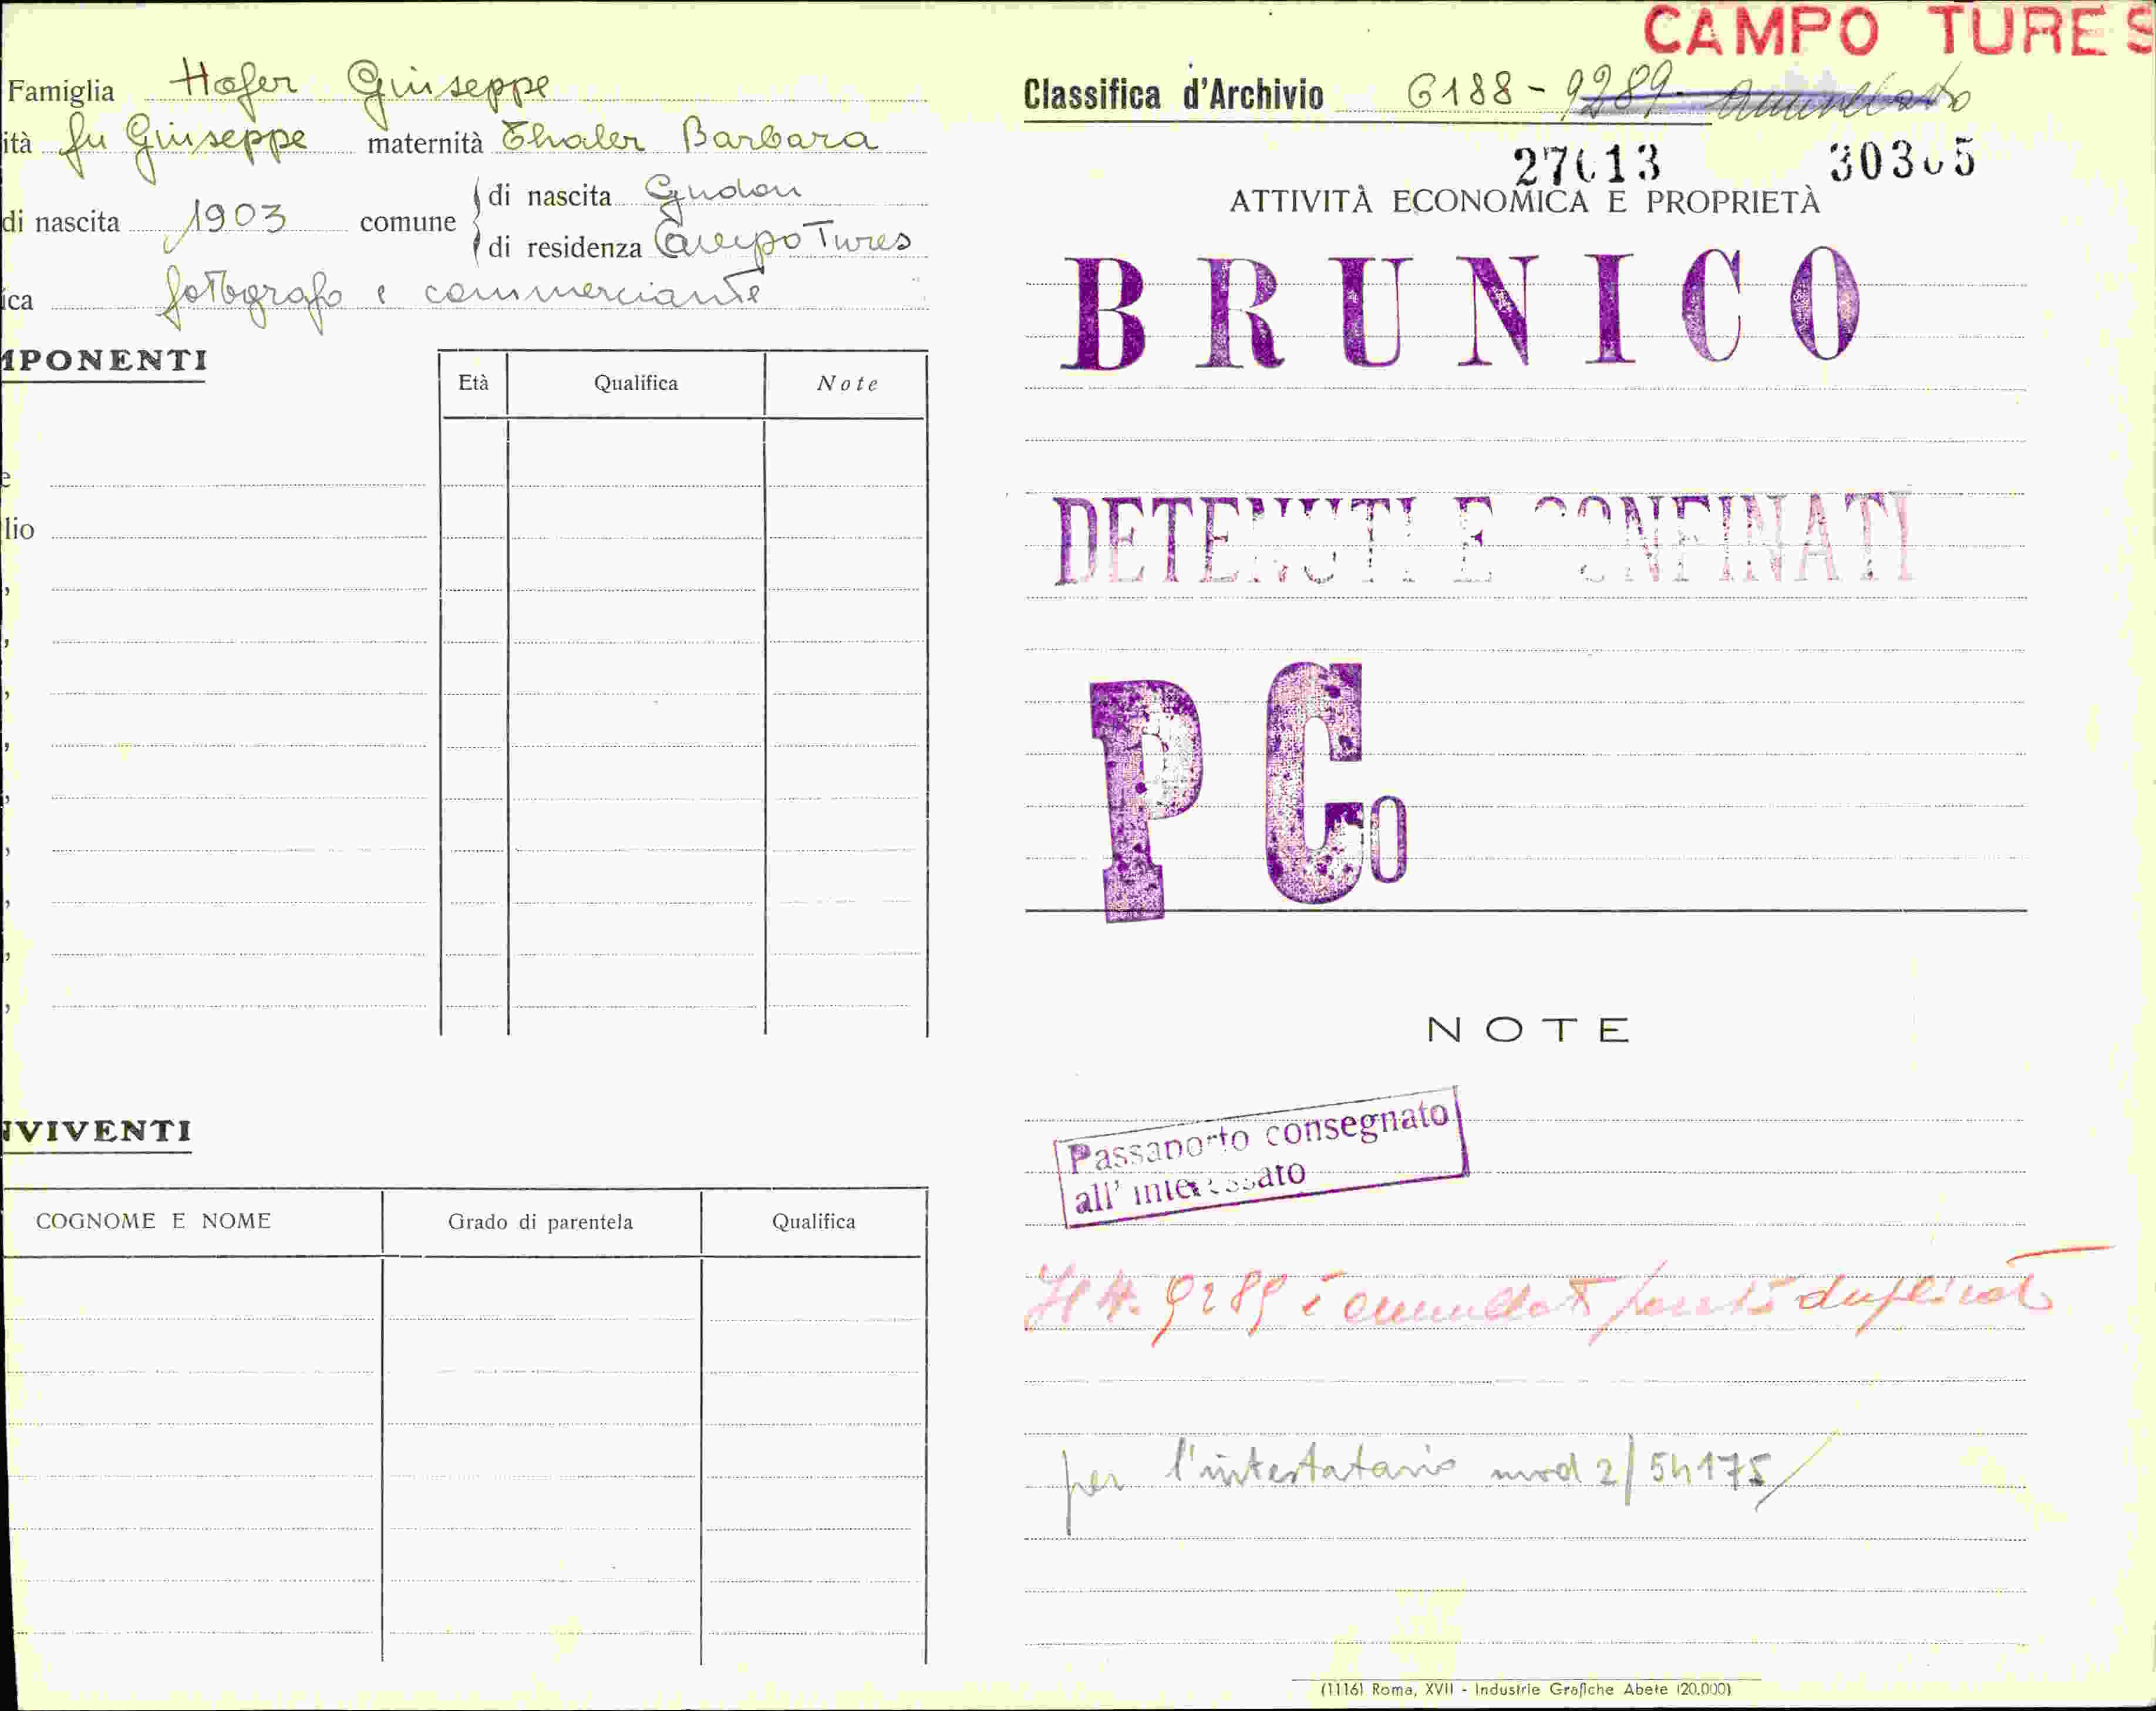 CAMPO TURES
Famiglia Hofer Giuseppe
ità fu Giuseppe maternità Thaler Barbara
di nascita 1903 comune di nascita Gudon
di residenza Campo Tures
ica fotografo e commerciante
MPONENTI
Età Qualifica Note
e
lio
NVIVENTI
COGNOME E NOME Grado di parentela Qualifica
Classifica d'Archivio 6188 - 9289 - annullato
27013 30305
ATTIVITÀ ECONOMICA E PROPRIETÀ
BRUNICO
DETENUTI E CONFINATI
P Co
NOTE
Passaporto consegnato
all' interessato
Il N. 9289 è annullato perchè duplicato
per l'intestatario mod 2/54175/
(1116) Roma, XVII - Industrie Grafiche Abete (20.000)